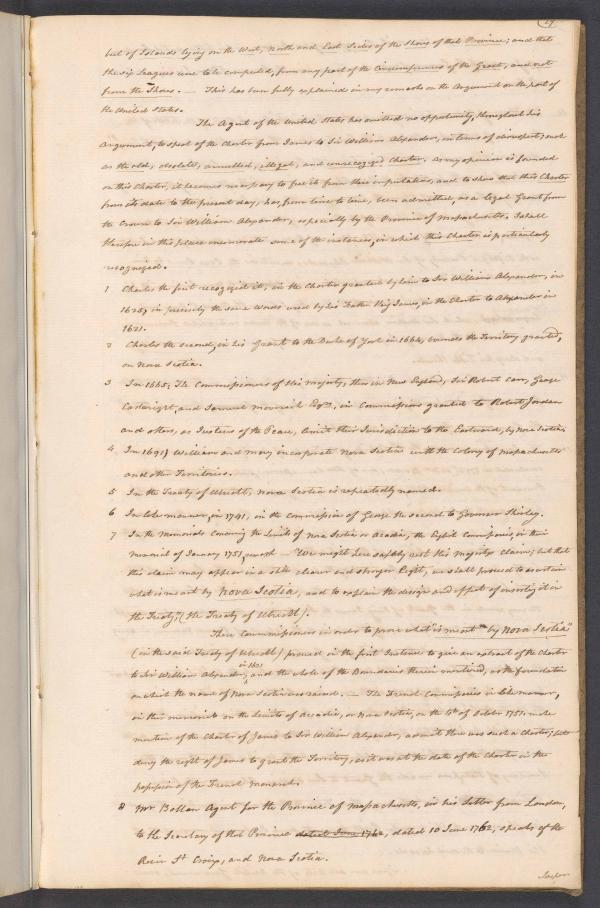 19
but of Islands lying on the West, North and East Sides of the Shore of that Province; and that
the six Leagues were to be computed, from any part of the Circumference of the Grant, and not
from the Shore. — This has been fully explained in my remarks on the Argument on the part of
the United States.
The Agent of the United States has omitted no opportunity, throughout his
Argument, to speak of the Charter from James to Sir William Alexander, in terms of disrespect; such
as the old, obsolete, annulled, illegal, and unrecognized Charter. As my opinion is founded
on this Charter, it becomes necessary to free it from these imputations, and to show that this Charter
from its date to the present day, has, from time to time, been admitted, as a legal Grant from
the Crown to Sir William Alexander, especially by the Province of Massachusetts. I shall
therefore in this place enumerate some of the instances, in which this Charter is particularly
recognized.
1 Charles the first recognized it, in the Charter granted by him to Sir William Alexander, in
1625, in precisely the same Words used by his Father King James, in the Charter to Alexander in
1621.
2 Charles the second, in his Grant to the Duke of York in 1664, bounds the Territory granted,
on Nova Scotia.
3 In 1665, The Commissioners of His Majesty, then in New England, Sir Robert Carr, George
Cartwright, and Samuel Maverick Esqrs, in Commissions granted to Robert Jordan
and others, as Justices of the Peace, limit their Jurisdiction to the Eastward, by Nova Scotia.
4 In 1691, William and Mary incorporate Nova Scotia with the Colony of Massachusetts
and other Territories.
5 In the Treaty of Utrecht, Nova Scotia is repeatedly named.
6 In like manner, in 1741, in the Commission of George the second to Governor Shirley.
7 In the Memorials concerning the Limits of Nova Scotia or Acadia, the English Commissaries, in their
memorial of January 1751, remark — "We might here safely rest His Majestys claim; but that
this claim may appear in a still clearer and stronger Light, we shall proceed to ascertain
what is meant by Nova Scotia, and to explain the design and effect of inserting it in
the Treaty," (the Treaty of Utrecht).
These Commissioners in order to prove what is meant "by Nova Scotia"
(in the said Treaty of Utrecht) proceed in the first Instance to give an extract of the Charter
to Sir William Alexander, in 1621 and the whole of the Boundaries therein mentioned, as the foundation
on which the name of Nova Scotia was raised. — The French Commissaries in like manner,
in their memorial on the Limits of Accadia, or Nova Scotia, on the 4th of October 1751, make
mention of the Charter of James to Sir William Alexander, admit there was such a Charter; but
deny the right of James to grant the Territory, as it was at the date of the Charter in the
possession of the French Monarch.
8 Mr Bollan Agent for the Province of Massachusetts, in his Letter from London,
to the Secretary of that Province dated June 1762, dated 10 June 1762, speaks of the
River St Croix, and Nova Scotia.